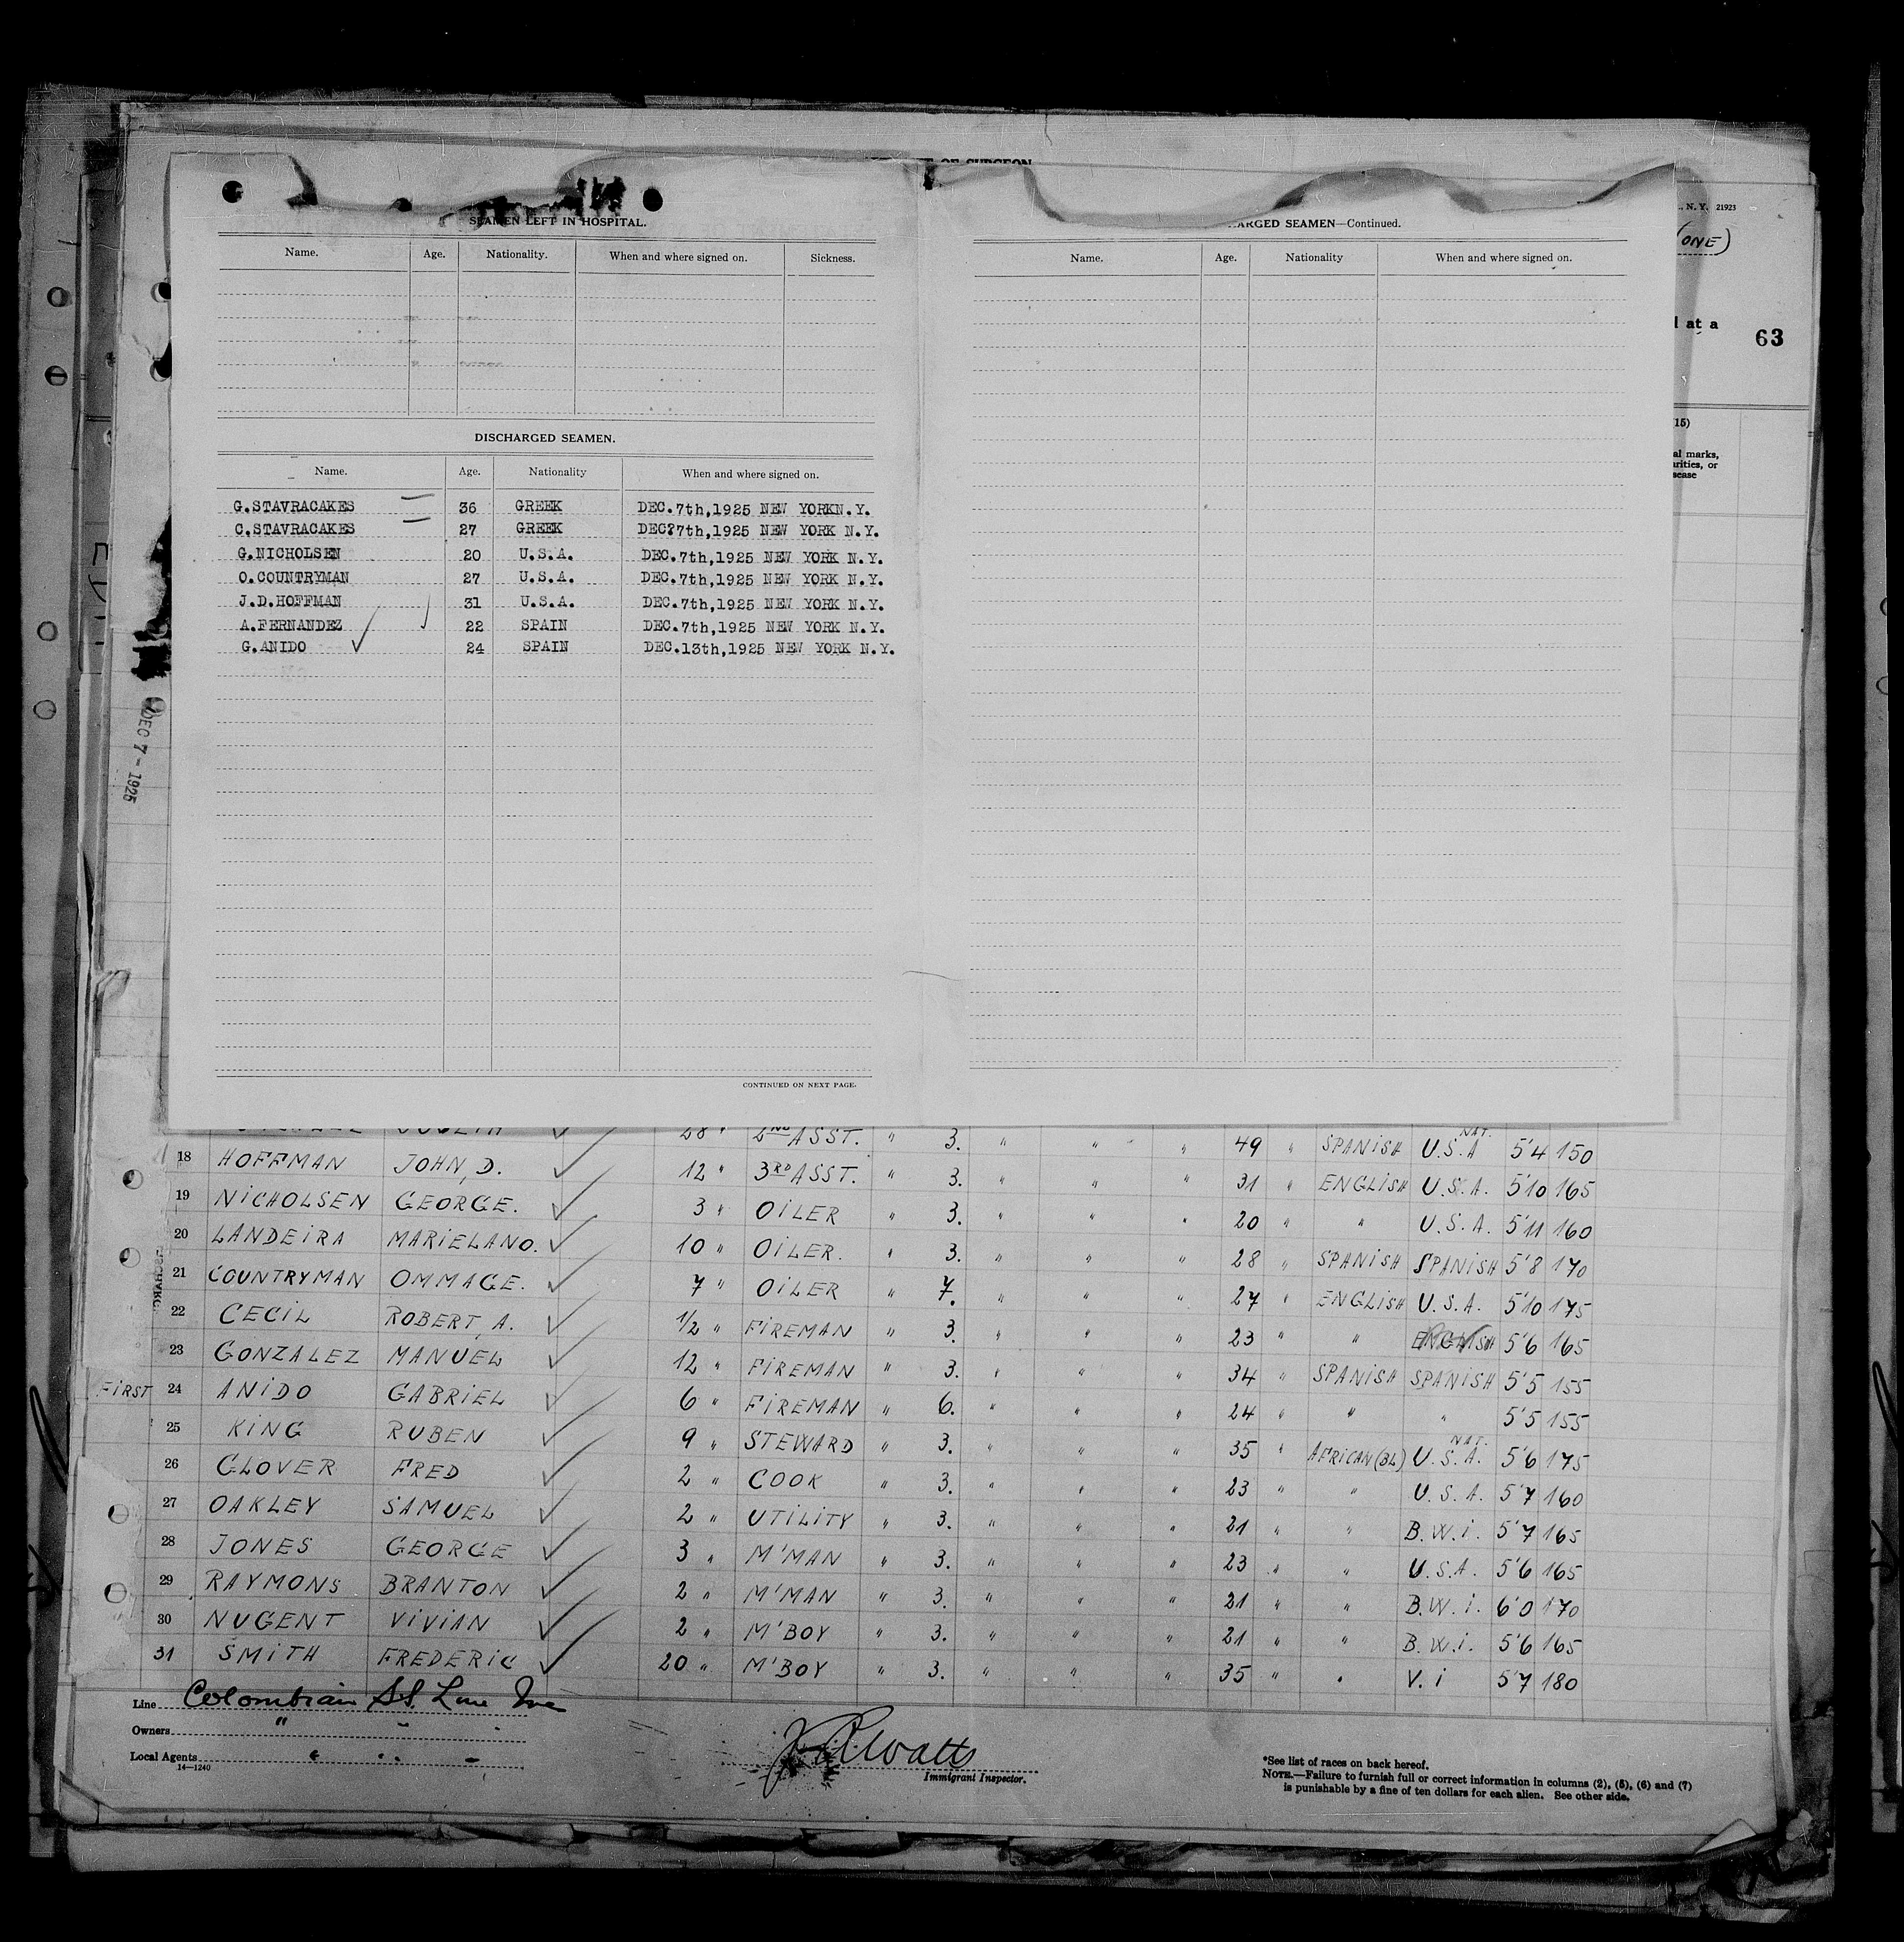 OF SURGEON
SEAMEN LEFT IN HOSPITAL.
Name. Age. Nationality. When and where signed on. Sickness.
DISCHARGED SEAMEN.
Name. Age. Nationality When and where signed on.
G.STAVRACAKES 36 GREEK DEC.7th,1925 NEW YORKN.Y.
C.STAVRACAKES 27 GREEK DEC?7th,1925 NEW YORK N.Y.
G.NICHOLSEN 20 U.S.A. DEC.7th,1925 NEW YORK N.Y.
O.COUNTRYMAN 27 U.S.A. DEC.7th,1925 NEW YORK N.Y.
J.D.HOFFMAN 31 U.S.A. DEC.7th,1925 NEW YORK N.Y.
A.FERNANDEZ 22 SPAIN DEC.7th,1925 NEW YORK N.Y.
G.ANIDO 24 SPAIN DEC.13th,1925 NEW YORK N.Y.
CONTINUED ON NEXT PAGE.
ARGED SEAMEN—Continued.
Name. Age. Nationality When and where signed on.
N. Y. 21923
(ONE)
at a
63
15)
al marks,
arities, or
sease
DEC 7 - 1925
28 " 2ND ASST. " 3. " " " 49 " SPANISH NAT. U.S.A 5'4 150
18 HOFFMAN JOHN, D. 12 " 3RD ASST. " 3. " " " 31 " ENGLISH U.S.A. 5'10 165
19 NICHOLSEN GEORGE. 3 " OILER " 3. " " " 20 " " U.S.A. 5'11 160
20 LANDEIRA MARIELANO. 10 " OILER. " 3. " " " 28 " SPANISH SPANISH 5'8 170
21 COUNTRYMAN OMMAGE. 7 " OILER " 7. " " " 27 " ENGLISH U.S.A. 5'10 175
22 CECIL ROBERT, A. 1/2 " FIREMAN " 3. " " " 23 " " ENGLISH 5'6 165
23 GONZALEZ MANUEL 12 " FIREMAN " 3. " " " 34 " SPANISH SPANISH 5'5 155
FIRST 24 ANIDO GABRIEL 6 " FIREMAN " 6. " " " 24 " " " 5'5 155
25 KING RUBEN 9 " STEWARD " 3. " " " 35 " AFRICAN(BL) NAT. U.S.A. 5'6 175
26 GLOVER FRED 2 " COOK " 3. " " " 23 " " U.S.A. 5'7 160
27 OAKLEY SAMUEL 2 " UTILITY " 3. " " " 21 " " B.W.I. 5'7 165
28 JONES GEORGE 3 " M'MAN " 3. " " " 23 " " U.S.A. 5'6 165
29 RAYMONS BRANTON 2 " M'MAN " 3. " " " 21 " " B.W.I. 6'0 170
30 NUGENT VIVIAN 2 " M'BOY " 3. " " " 21 " " B.W.I. 5'6 165
31 SMITH FREDERIC 20 " M'BOY " 3. " " " 35 " " V.I 5'7 180
Line Colombian SS. Line Inc
Owners " " "
Local Agents " " "
14—1240
Watts
Immigrant Inspector.
*See list of races on back hereof.
NOTE.—Failure to furnish full or correct information in columns (2), (5), (6) and (7)
is punishable by a fine of ten dollars for each alien. See other side.